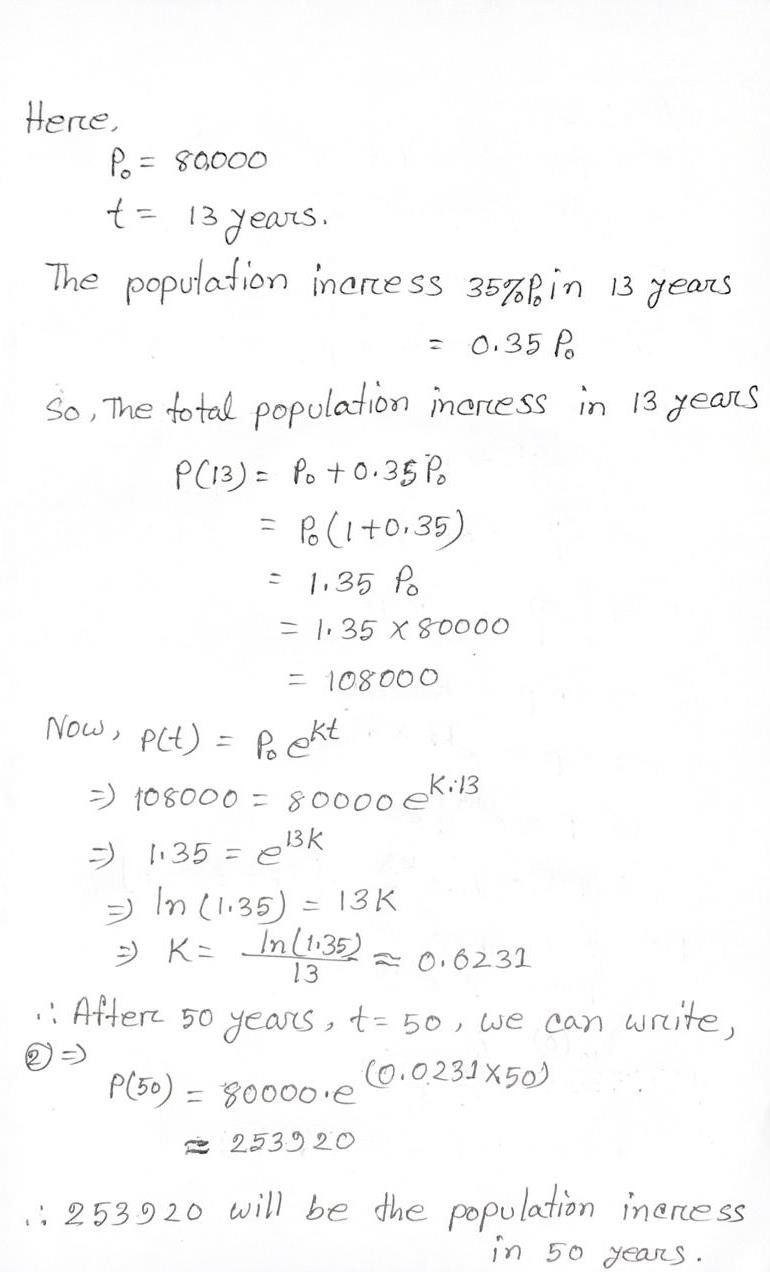 Here,
P₀ = 80,000
t = 13 years.
The population incress 35% P₀ in 13 years
= 0.35 P₀
So, The total population incress in 13 years
P(13) = P₀ + 0.35 P₀
= P₀ (1+0.35)
= 1.35 P₀
= 1.35 × 80000
= 108000
Now, P(t) = P₀ e^{kt}
⇒ 108000 = 80000 e^{K.13}
⇒ 1.35 = e^{13K}
⇒ ln (1.35) = 13K
⇒ K = ln(1.35)/13 ≈ 0.6231
∴ After 50 years, t = 50, we can write,
② ⇒
P(50) = 80000.e^{(0.0231×50)}
≈ 253920
∴ 253920 will be the population incress
in 50 years.